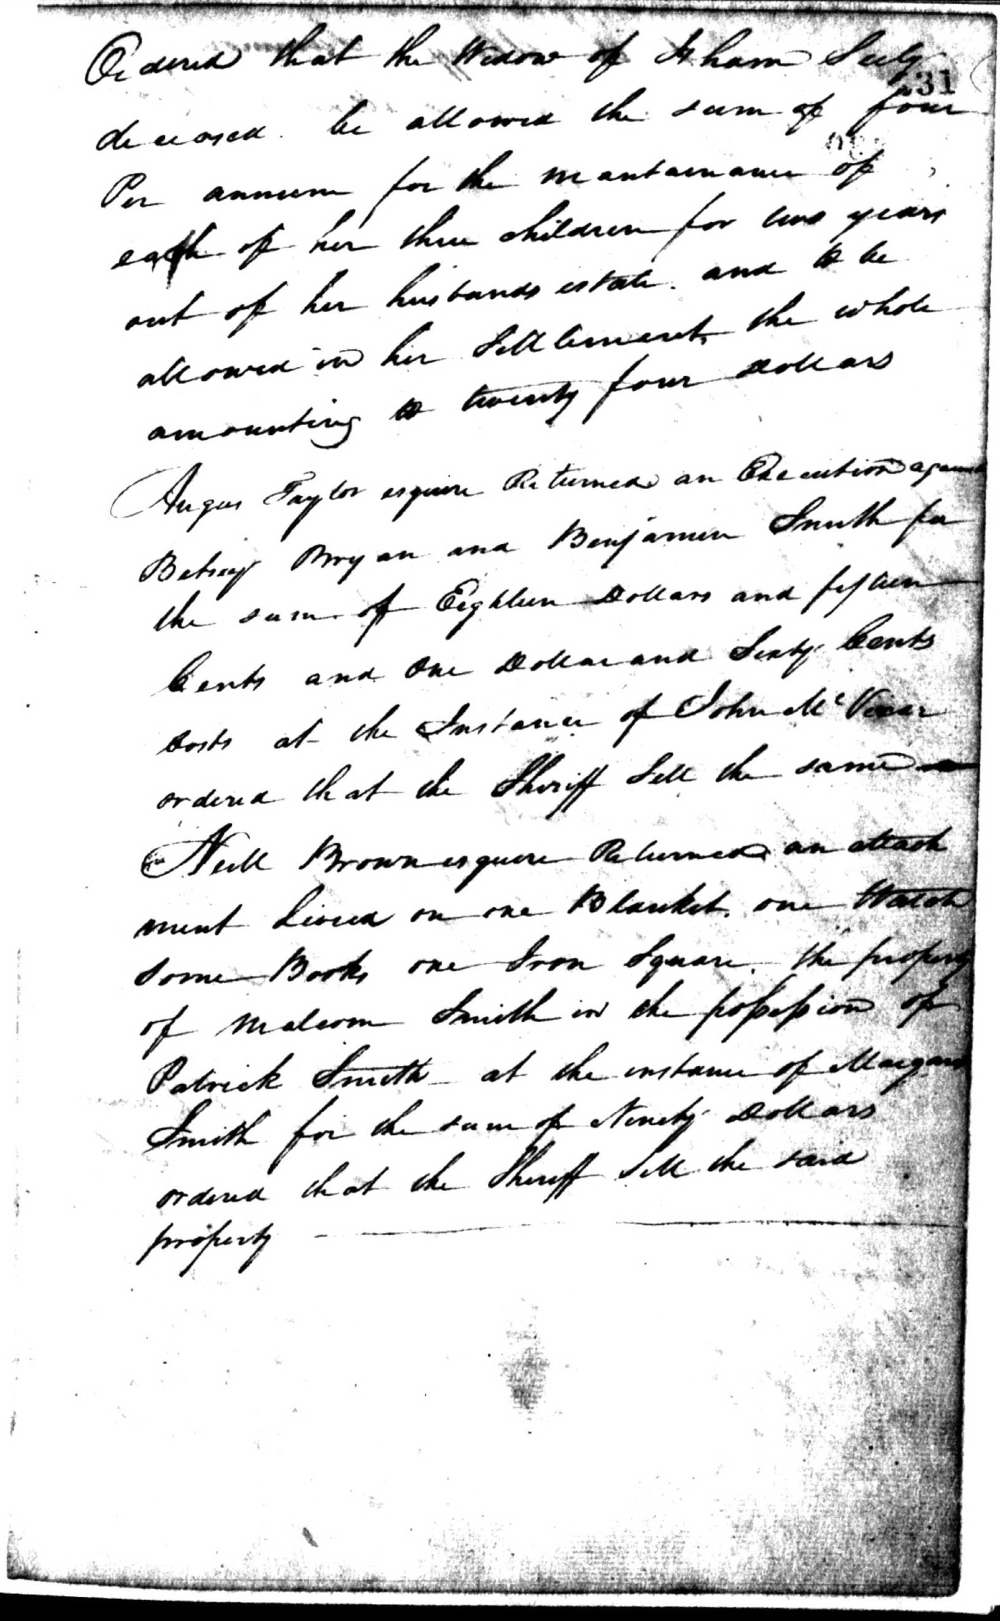 Ordered that the Widow of Isham Seely
231
deceased. be allowed the sum of four
Per annum for the mantainance of
each of her three children for two years
out of her husbands estate. and to be
allowed in her Settlement, the whole
amounting to twenty four Dollars
Angus Taylor esquire Returned an Execution against
Betsey Bryan and Benjamin Smith for
the sum of Eighteen Dollars and fifteen
Cents and One Dollar and Sixty Cents
Costs at the Instance of John Mc
ordered that the Sheriff Sell the same
Neill Brown esquire Returned an attach
ment Levied on one Blanket. one Watch
Some Books one Iron Square. the property
of Malcom Smith in the possession of
Patrick Smith at the instance of Margaret
Smith for the sum of Ninety Dollars
ordered that the Sheriff Sell the said
property